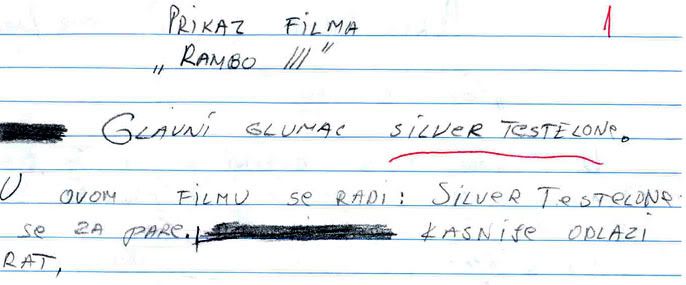 PRIKAZ FILMA 1
„RAMBO III"
GLAVNI GLUMAC SILVER TESTELONE.
U OVOM FILMU SE RADI: SILVER TESTELONE
SE ZA PARE. KASNIJE ODLAZI
RAT,